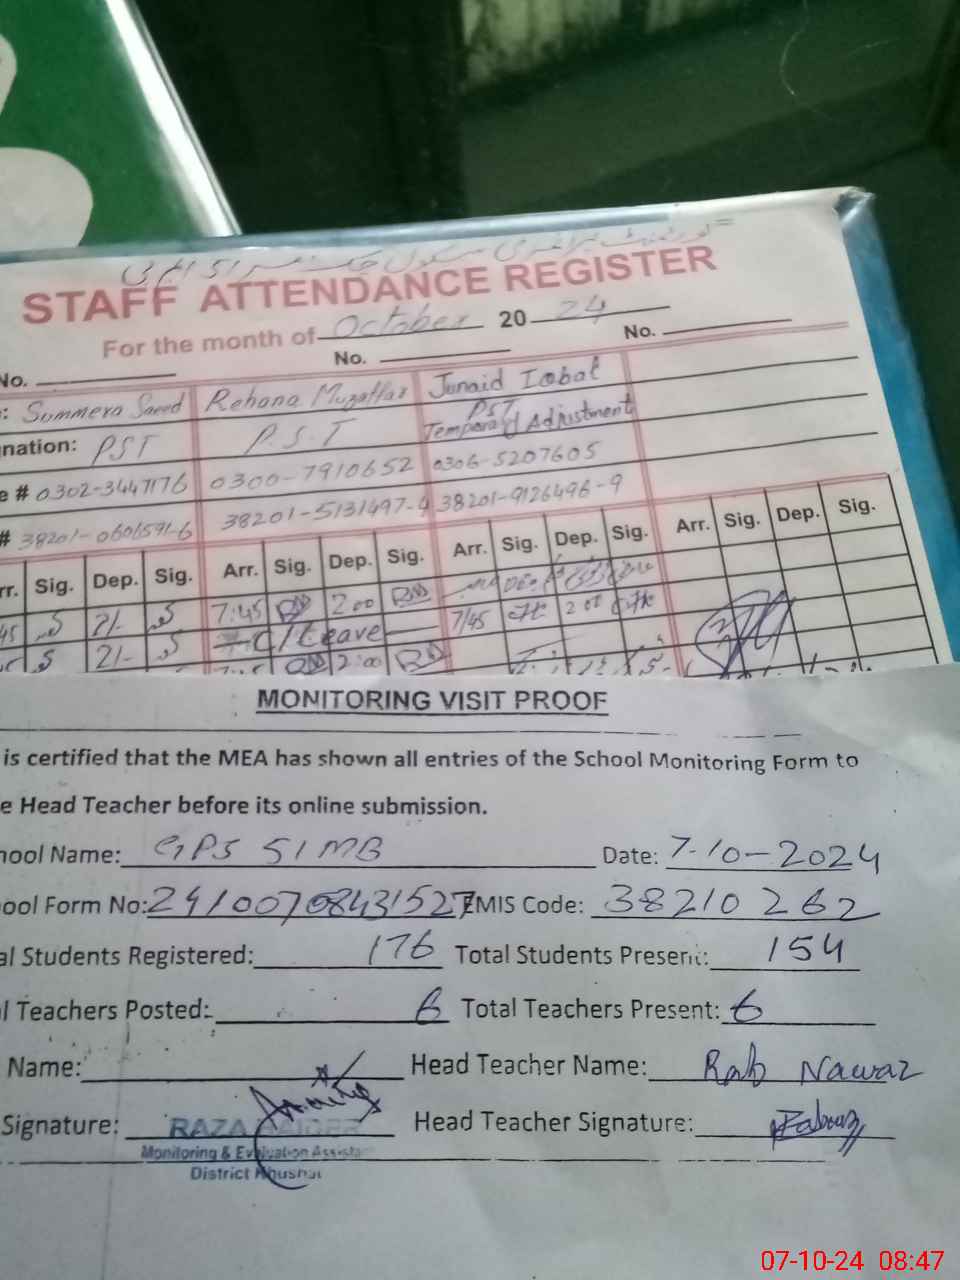 STAFF ATTENDANCE REGISTER
For the month of October 20 24
No. No. No.
: Summera Saeed Rehana Muzaffar Junaid Iqbal
nation: PST P.S.T PST
Temporary Adjustment
e # 0302-3447176 0300-7910652 0306-5207605
# 38201-0601591-6 38201-5131497-4 38201-9126496-9
rr. Sig. Dep. Sig. Arr. Sig. Dep. Sig. Arr. Sig. Dep. Sig. Arr. Sig. Dep. Sig.
45 2/- 7:45 2:00 7/45 2:00
2/- C/Leave
2:00
MONITORING VISIT PROOF
is certified that the MEA has shown all entries of the School Monitoring Form to
e Head Teacher before its online submission.
hool Name: GPS 51 MB Date: 7-10-2024
ool Form No: 24100708431527 EMIS Code: 38210262
al Students Registered: 176 Total Students Present: 154
l Teachers Posted: 6 Total Teachers Present: 6
Name: Head Teacher Name: Rab Nawaz
Signature: RAZA HAIDER Head Teacher Signature:
Monitoring & Evaluation Assista
District Khushab
07-10-24 08:47